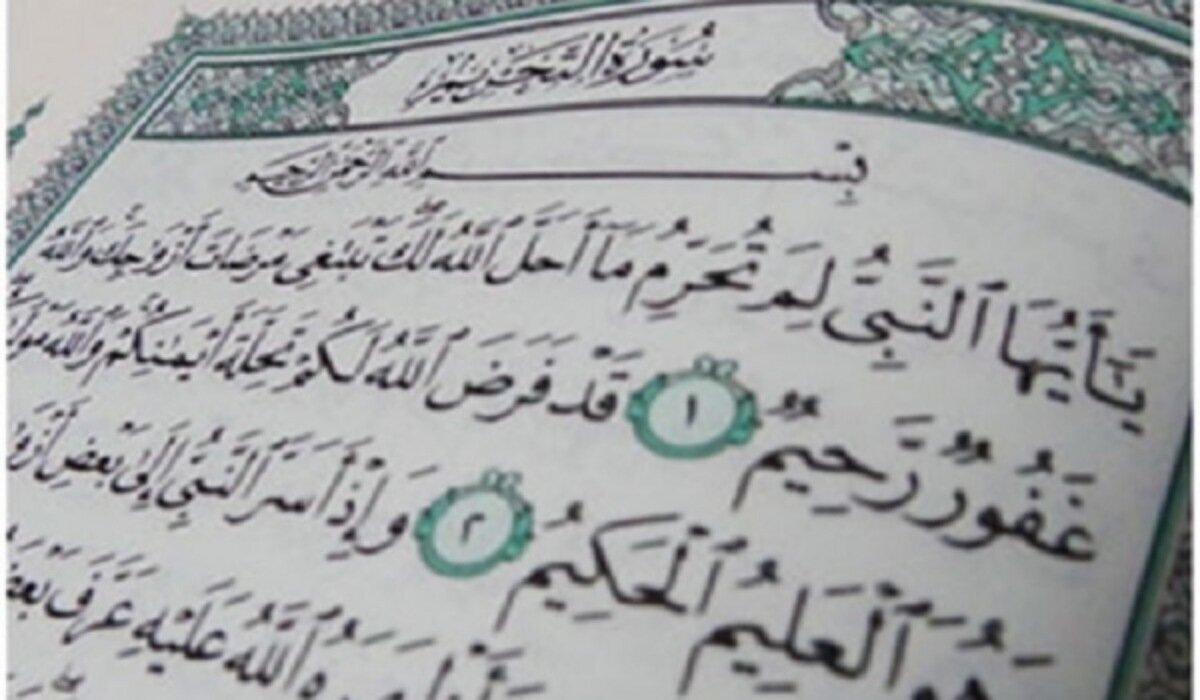 سُورَةُ التَّحْرِيمِ
بِسْمِ اللَّهِ الرَّحْمَٰنِ الرَّحِيمِ
يَٰٓأَيُّهَا ٱلنَّبِىُّ لِمَ تُحَرِّمُ مَآ أَحَلَّ ٱللَّهُ لَكَ تَبْتَغِى مَرْضَاتَ أَزْوَٰجِكَ وَٱللَّهُ
غَفُورٌ رَّحِيمٌ ١ قَدْ فَرَضَ ٱللَّهُ لَكُمْ تَحِلَّةَ أَيْمَٰنِكُمْ وَٱللَّهُ
ٱلْعَلِيمُ ٱلْحَكِيمُ ٢ وَإِذْ أَسَرَّ ٱلنَّبِىُّ إِلَىٰ بَعْضِ
ٱللَّهُ عَلَيْهِ عَرَّفَ